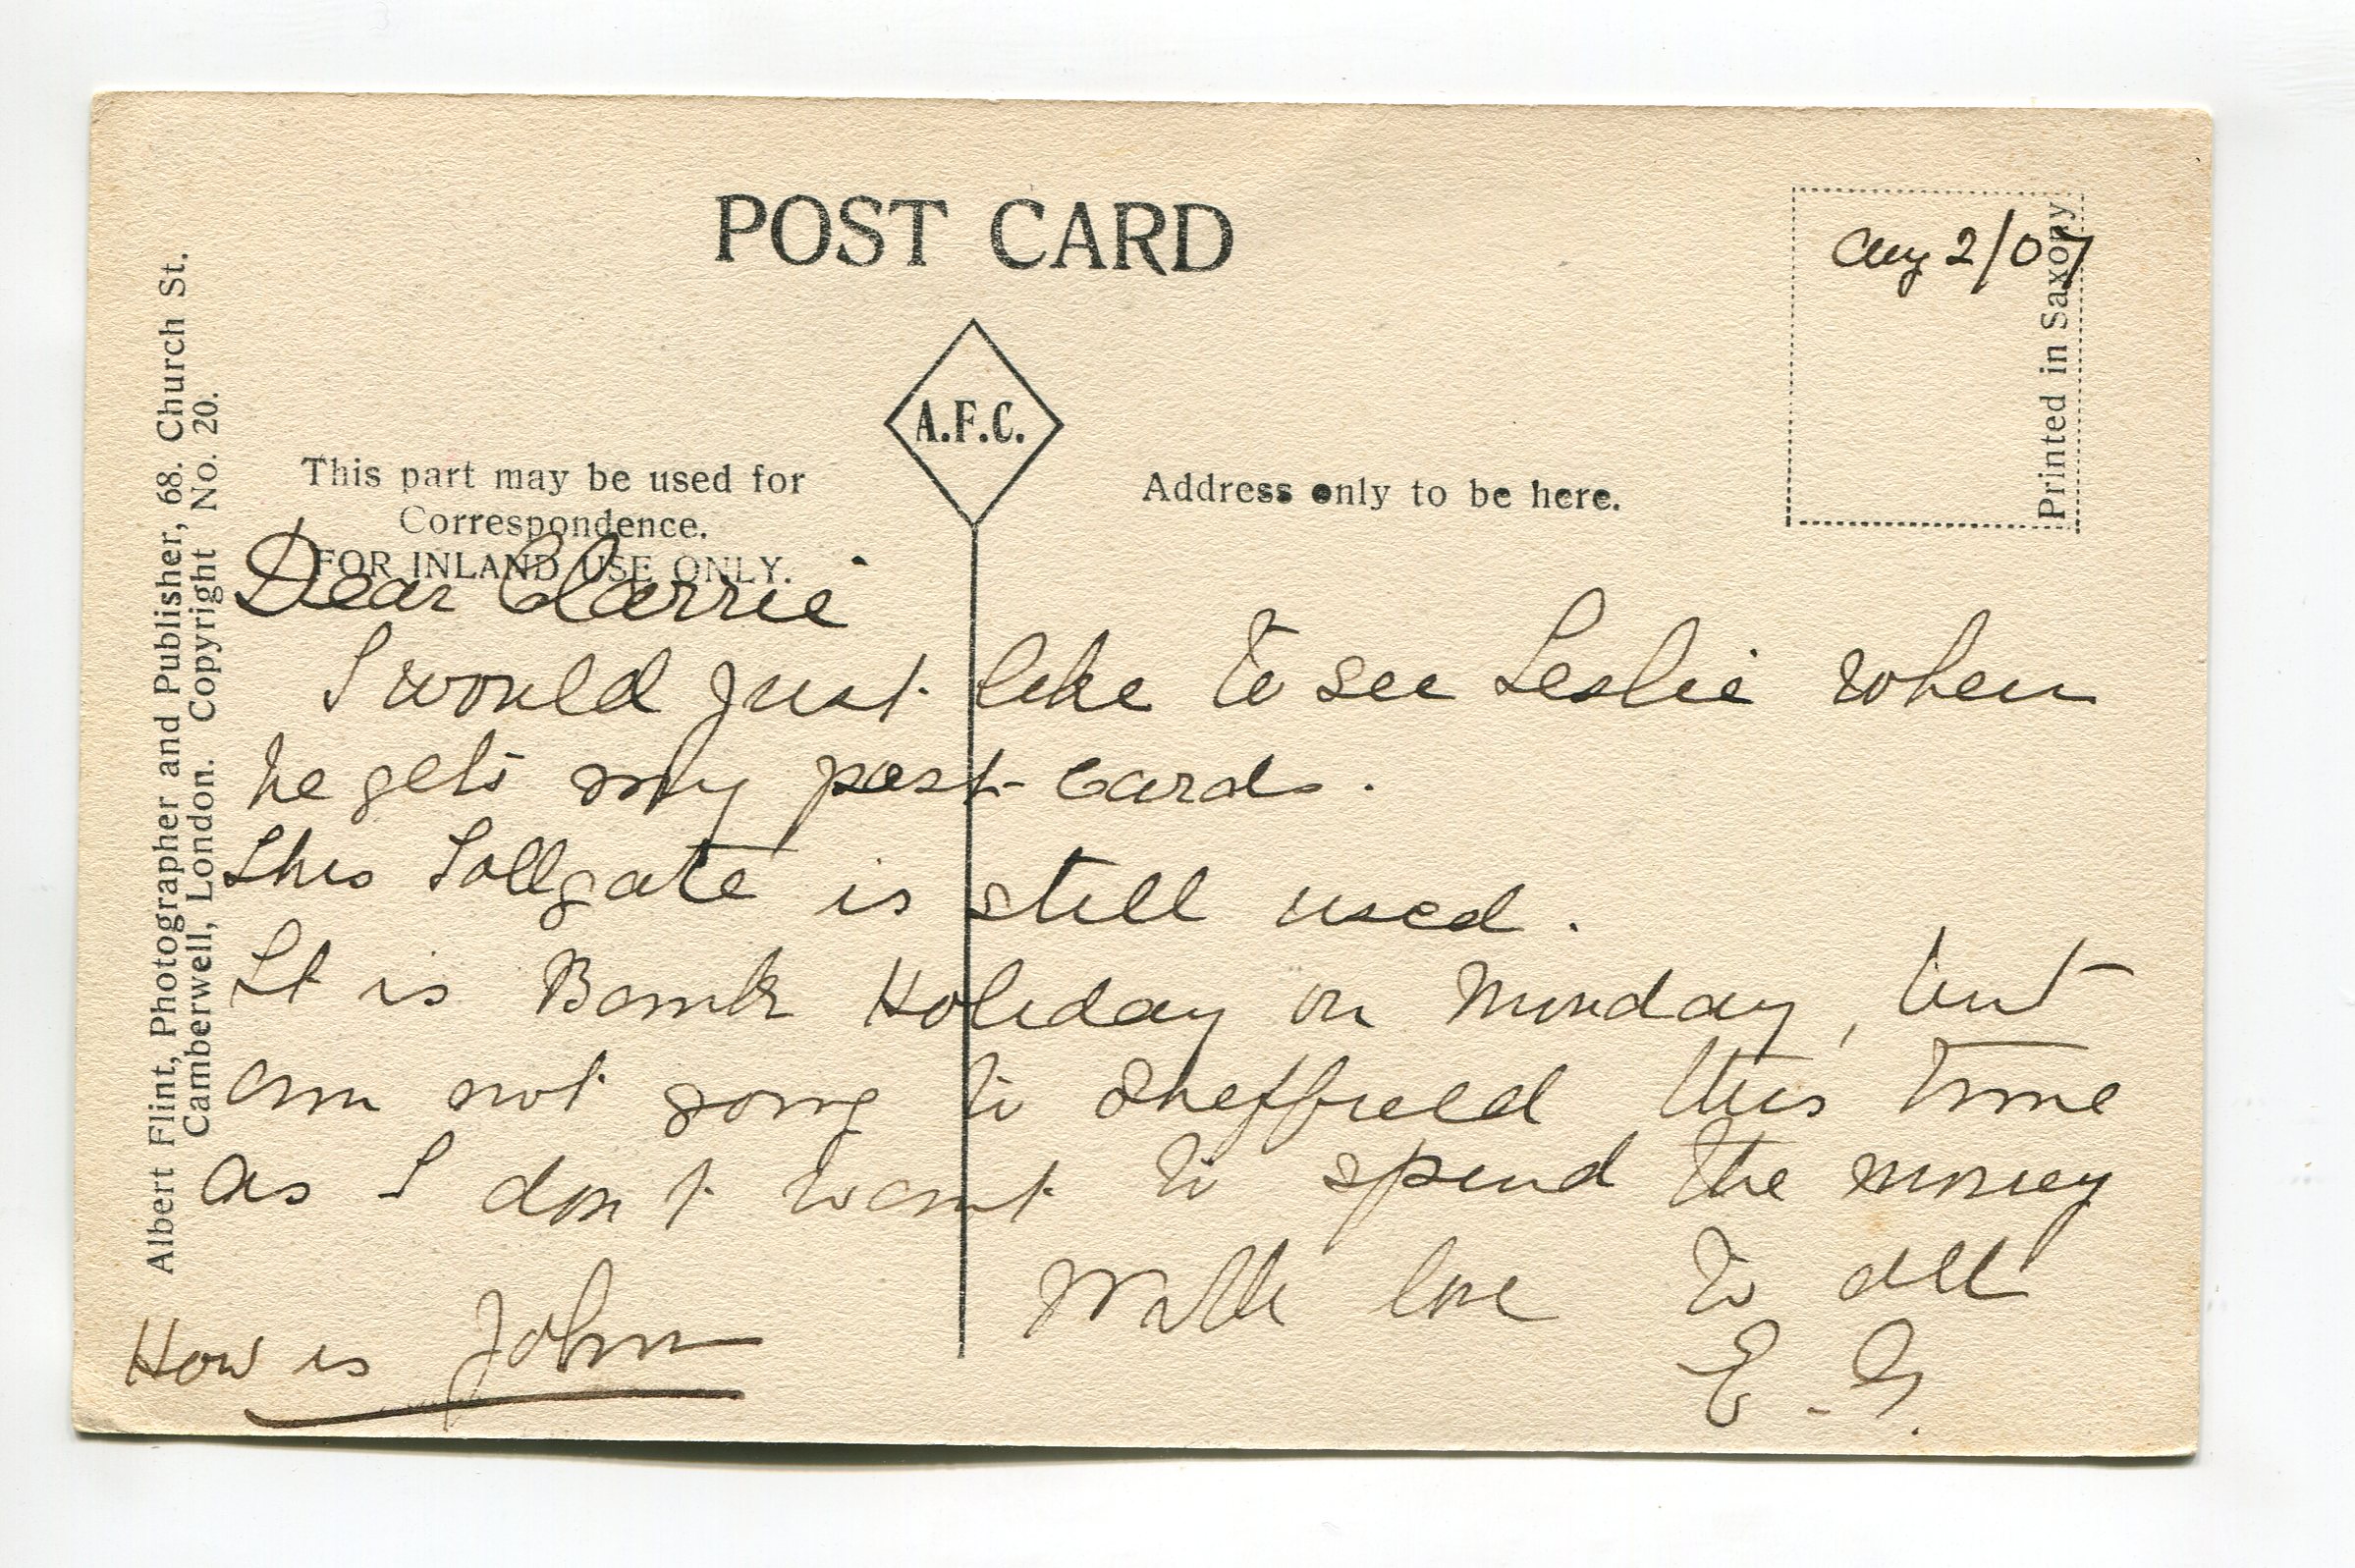 POST CARD
Aug 2/07
Printed in Saxony
A.F.C.
This part may be used for
Correspondence.
FOR INLAND USE ONLY.
Address only to be here.
Albert Flint, Photographer and Publisher, 68. Church St.
Camberwell, London. Copyright No. 20.
Dear Carrie
I would just like to see Leslie when
he gets my post-cards.
This Tollgate is still used.
It is Bank Holiday on Monday, but
am not going to Sheffield this time
as I don't want to spend the money
With love to all
E. G.
How is John